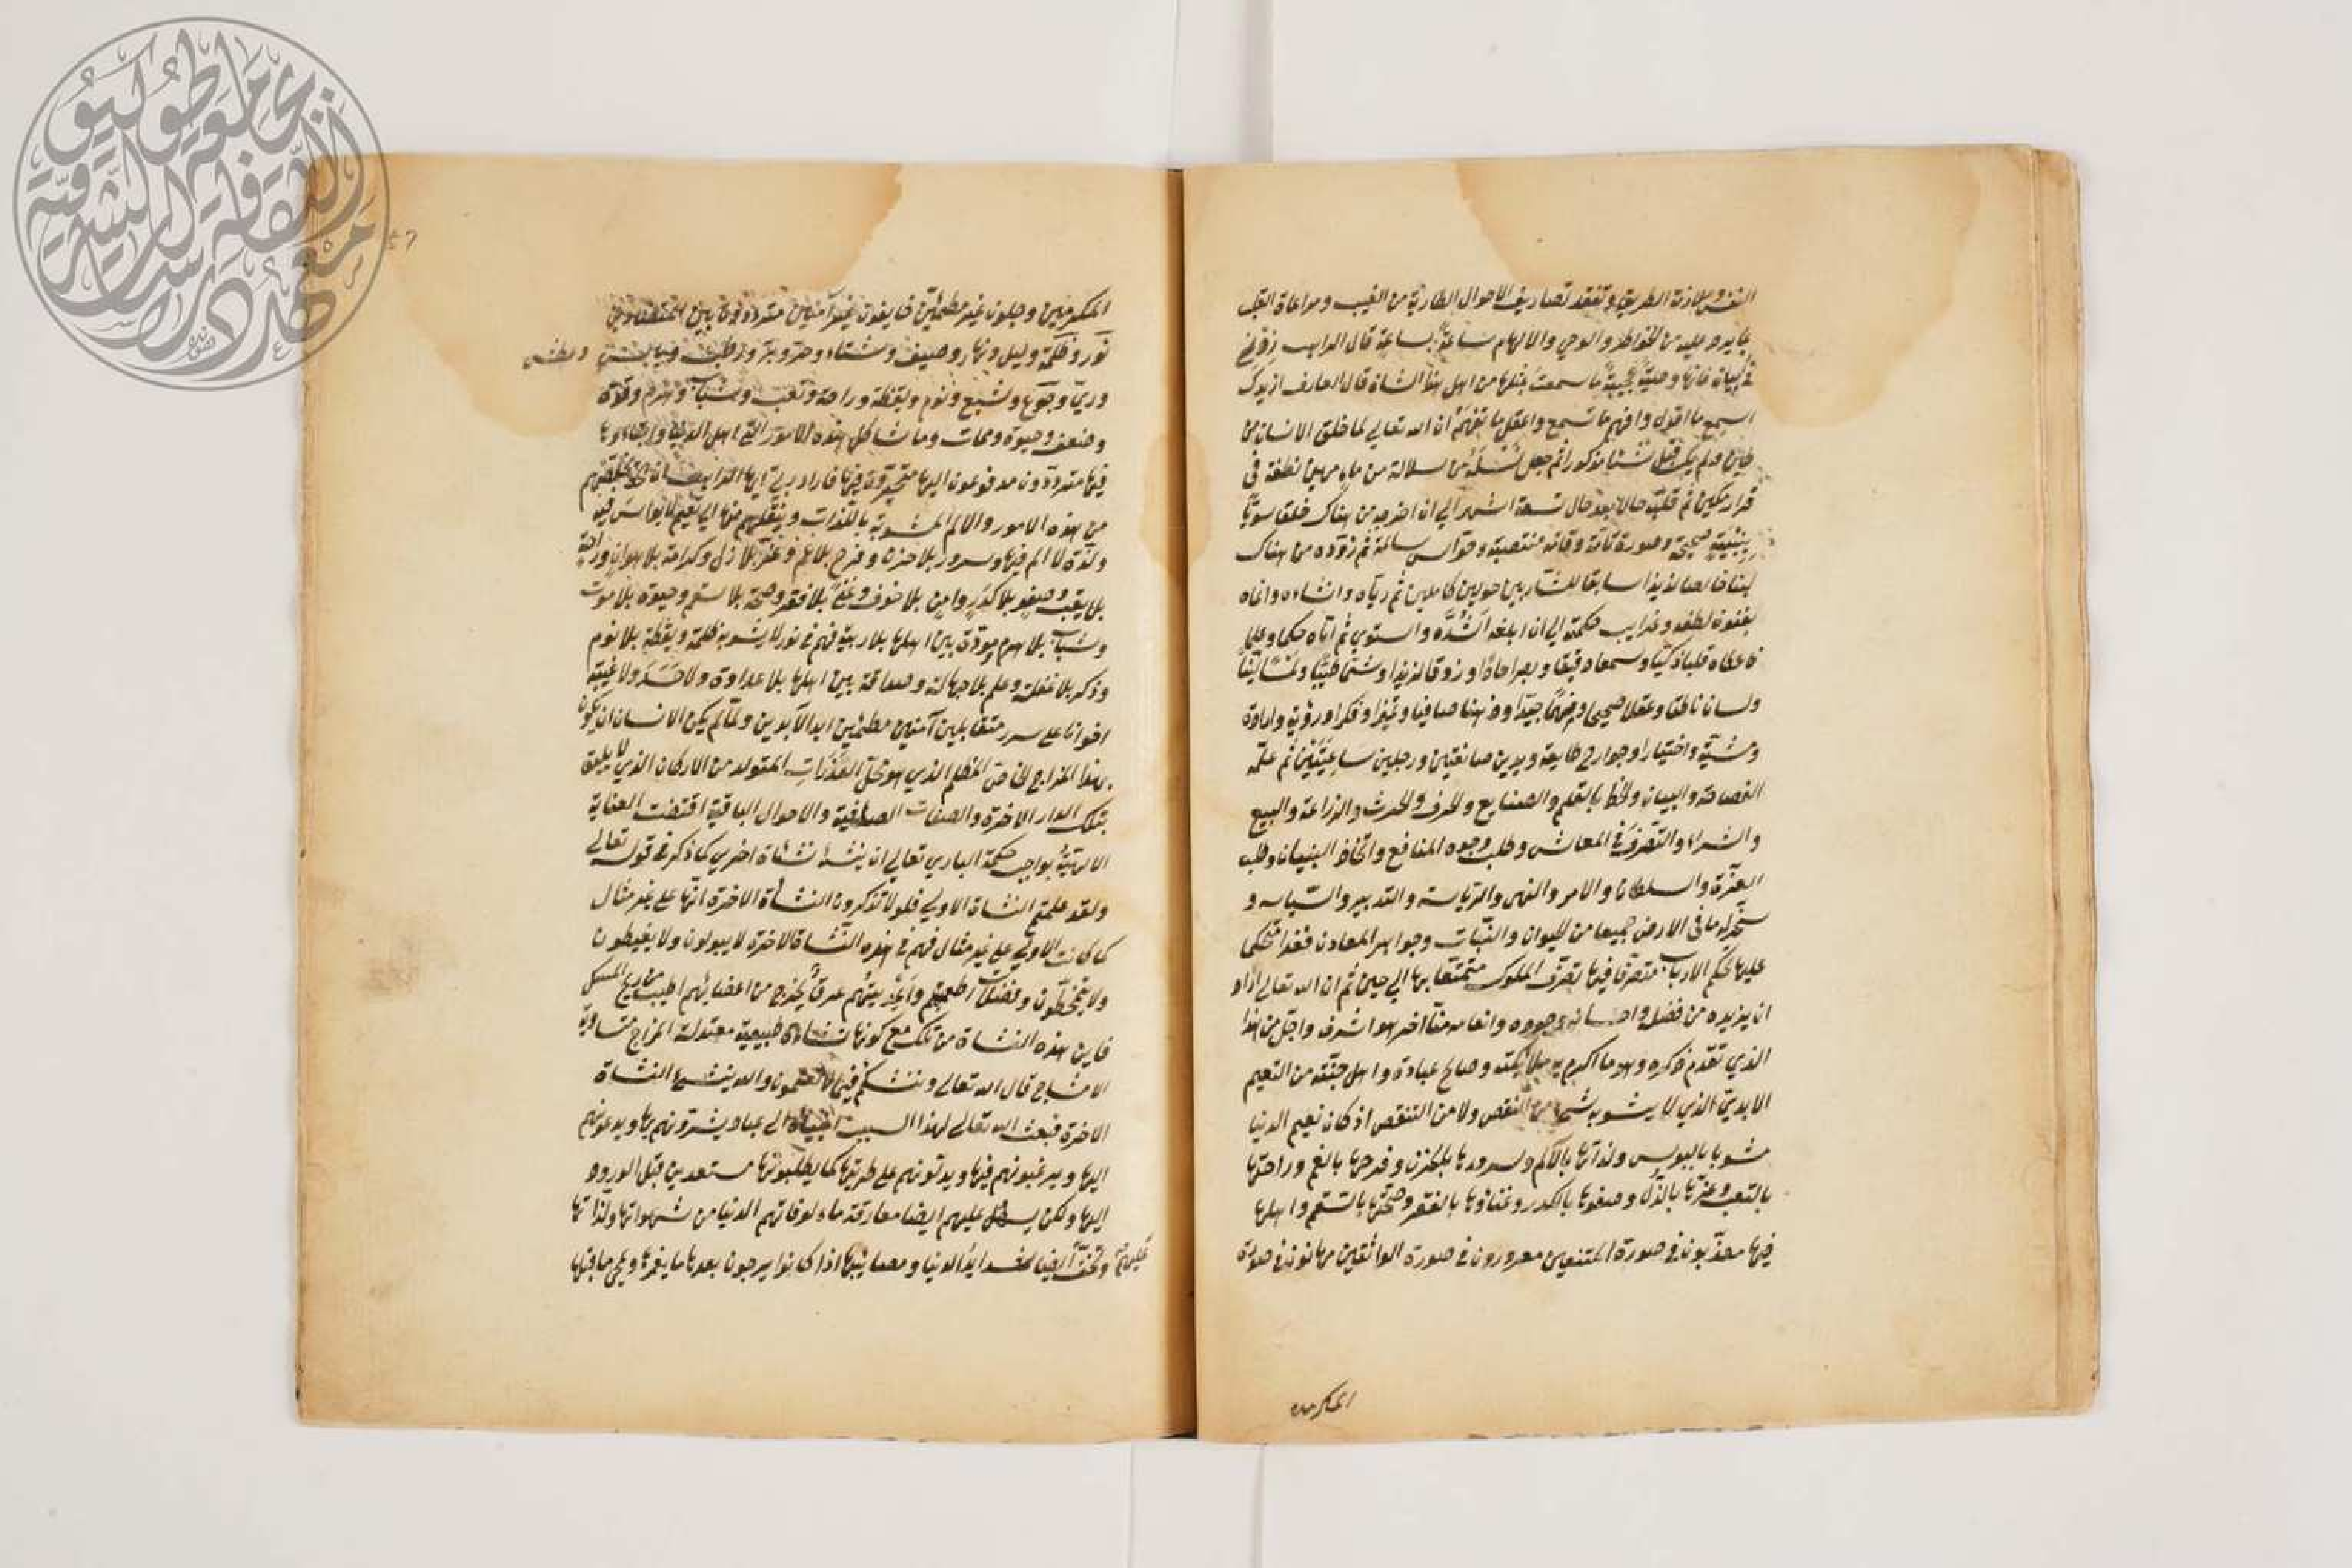 النفس وملازمة الطريق وتفقد تصاريف الاحوال الطارية من الغيب ومراعاة القلب
بما يرد عليه من الخواطر والوحي والالهام ساعة بساعة قال الراهب زدني
في البيان فانها وصية عجيبة ما سمعت بمثلها من اهل هذا الشان قال العارف ازيدك
اسمع ما اقول وافهم ما تسمع واعقل ما تفهم ان الله تعالى لما خلق الانسان من
طين ولم يك قبل شيئا مذكورا ثم جعل نسله من سلالة من ماء مهين نطفة في
قرار مكين ثم قلبه حالا بعد حال تسعة اشهر الى ان اخرجه من هناك خلقا سويا
ببنية صحيحة وصورة تامة وقامة منتصبة وحواس سالمة ثم زوده من هناك
لبنا خالصا لذيذا سايغا للشاربين حولين كاملين ثم رباه وانشاه وانماه
بفنون لطفه وغرايب حكمته الى ان ابلغه اشده واستوى ثم اتاه حكما وعلما
فاعطاه قلبا ذكيا وسمعا دقيقا وبصرا حادا وذوقا لذيذا وشما طيبا ولمسا لينا
ولسانا ناطقا وعقلا صحيحا وفهما جيدا وذهنا صافيا وتميزا وفكرا ورؤية وارادة
ومشية واختيارا وجوارح طايعة ويدين صانعتين ورجلين ساعيتين ثم علمه
الفصاحة والبيان والخط بالقلم والصنايع والحرف والحرث والزراعة والبيع
والشراء والتصرف في المعاش وطلب وجوه المنافع واتخاذ البنيان وطلب
العزة والسلطان والامر والنهي والرياسة والتدبير والسياسة و
سخر له ما في الارض جميعا من الحيوان والنبات وجواهر المعادن فغدا متحكما
عليها تحكم الارباب متصرفا فيها تصرف الملوك متمتعا بها الى حين ثم ان الله تعالى اراد
ان يزيده من فضله واحسانه وجوده وانعامه فنا اخر هو اشرف واجل من هذا
الذي تقدم ذكره وهو ما اكرم به ملائكته وصالح عباده واهل جنته من النعيم
الابدي الذي لا يشوبه شيء من النقص ولا من التنقص اذ كان نعيم الدنيا
مشوبا بالبوس ولذاتها بالالم وسرورها بالحزن وفرحها بالغم وراحتها
بالتعب وعزتها بالذل وصفوها بالكدر وغناؤها بالفقر وصحتها بالسقم واهلها
فيها معذبون في صورة المتنعمين مغرورون في صورة الواثقين مهانون في صورة
المكرمين
المكرمين وجلون غير مطمئنين خايفون غير آمنين مترددون بين
نور وظلمة وليل ونهار وصيف وشتاء وحر وبرد ورطب ويابس وعطش
وري وجوع وشبع ونوم ويقظة وراحة وتعب وشباب وهرم وقوة
وضعف وحيوة وممات وما شاكل هذه الامور التي اهل الدنيا وابناءوها
فيها مترددون مدفوعون اليها متحيرون فيها فاراد ربك ايها الراهب ان يخلصهم
من هذه الامور والالم المشوبة باللذات وينقلهم منها الى نعيم لا بوس فيه
ولذة لا الم فيها وسرور بلا حزن وفرح بلا غم وعز بلا ذل وكرامة بلا هوان وراحة
بلا تعب وصفو بلا كدر وامن بلا خوف وغنى بلا فقد وصحة بلا سقم وحيوة بلا موت
وشباب بلا هرم ومودة بين اهلها بلا ريبة فهم في نور لا يشوبه ظلمة ويقظة بلا نوم
وذكر بلا غفلة وعلم بلا جهالة وصداقة بين اهلها بلا عداوة ولا حسد ولا غيبة
اخوانا على سرر متقابلين آمنين مطمئنين ابد الآبدين ولما لم يكن الانسان ان يكون
بهذا المزاج الخاص المظلم الذي هو محل القذرات المتولد من الاركان الذي لا يليق
بتلك الدار الاخرة والصفات الصافية والاحوال الباقية اقتضت العناية
الالهية بواجب حكمة الباري تعالى ان ينشئ نشاة اخرى كما ذكر في قوله تعالى
ولقد علمتم النشاة الاولى فلولا تذكرون النشاة الاخرة انها على غير مثال
كما كانت الاولى على غير مثال فهم في هذه النشاة الاخرة لا يبولون ولا يغيطون
ولا يتمخطون وفضلات اطعمتهم واغذيتهم عرق يخرج من اعضائهم اطيب من ريح المسك
فاين هذه النشاة من تلك مع كونها نشاة طبيعية معتدلة المزاج متساوية
الامشاج قال الله تعالى وننشئكم فيما لا تعلمون والله ينشئ النشاة
الاخرة فبعث الله تعالى لهذا السبب انبياءه الى عباده يبشرونهم بها ويدعونهم
اليها ويرغبونهم فيها ويدلونهم على طريقها كما يطلبونها مستعدين قبل الورود
اليها ولكن يسهل عليهم ايضا مفارقة مالوفاتهم الدنيا من شهواتها ولذاتها
وتخف عليهم ايضا شدايد الدنيا ومصايبها اذا كانوا يرجون بعدها ما يغمرها ويمحي ما قبلها